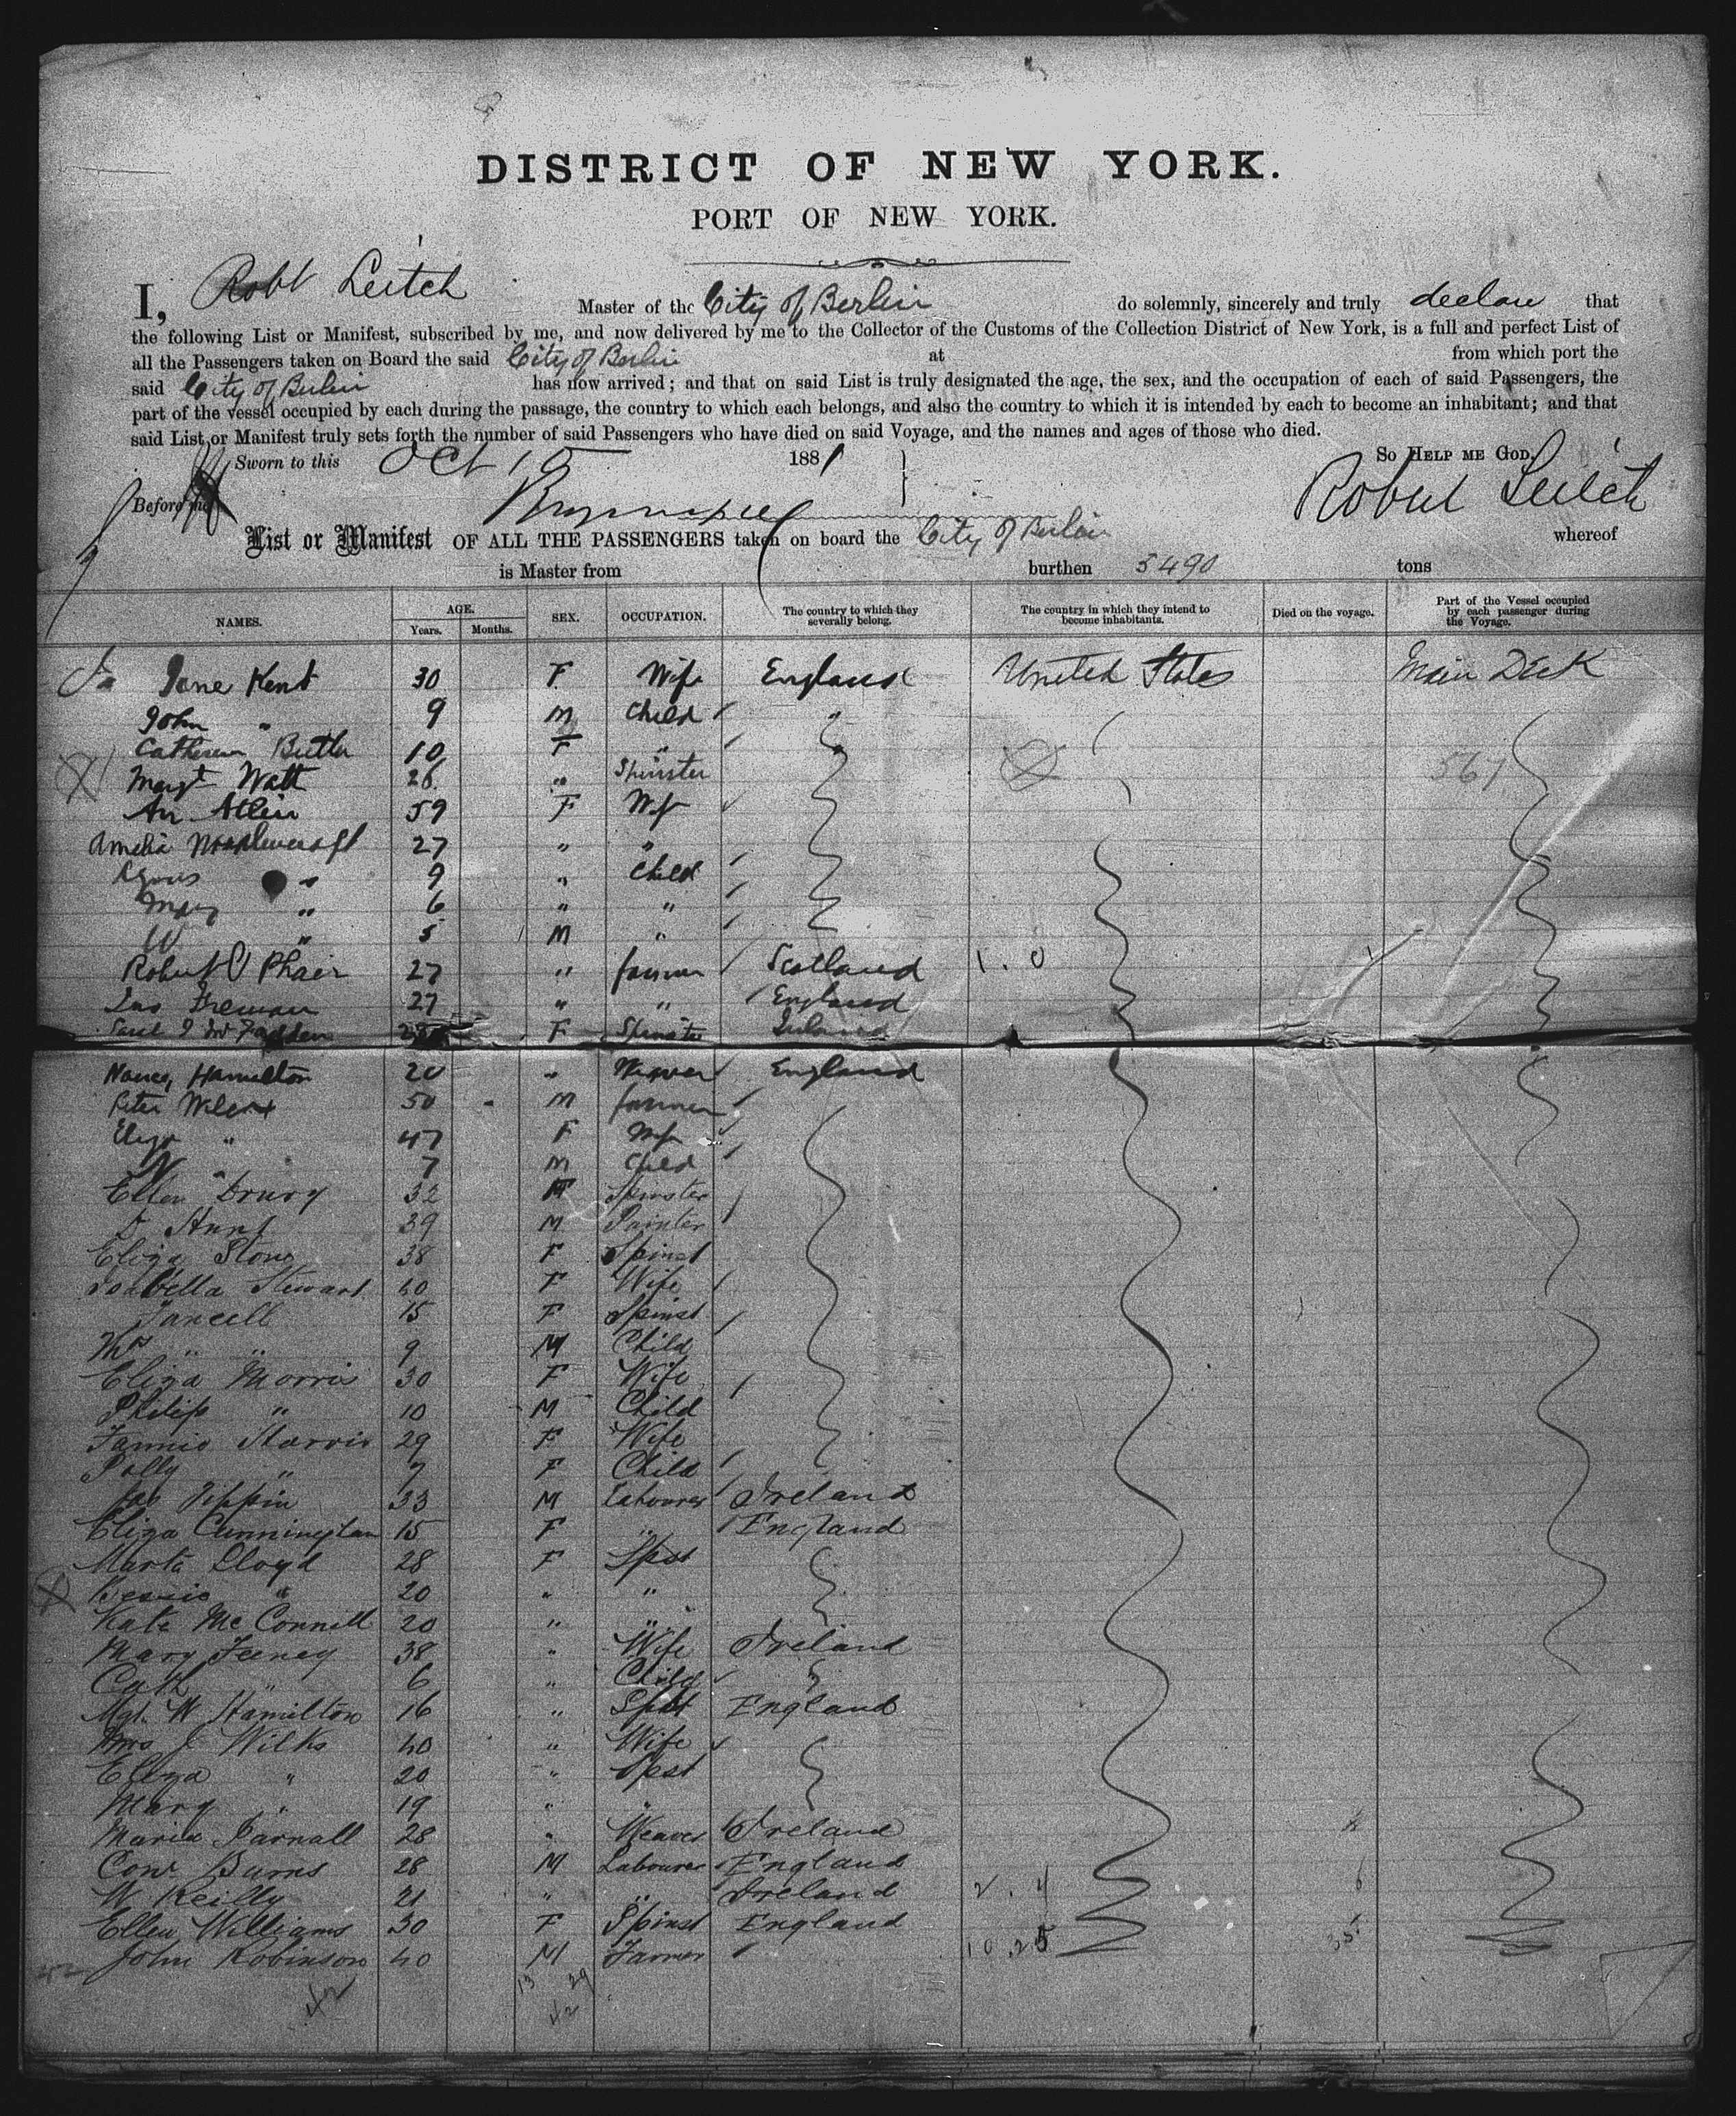 DISTRICT OF NEW YORK.
PORT OF NEW YORK.
I, Robt Leitch Master of the City of Berlin do solemnly, sincerely and truly declare that
the following List or Manifest, subscribed by me, and now delivered by me to the Collector of the Customs of the Collection District of New York, is a full and perfect List of
all the Passengers taken on Board the said City of Berlin at from which port the
said City of Berlin has now arrived; and that on said List is truly designated the age, the sex, and the occupation of each of said Passengers, the
part of the vessel occupied by each during the passage, the country to which each belongs, and also the country to which it is intended by each to become an inhabitant; and that
said List or Manifest truly sets forth the number of said Passengers who have died on said Voyage, and the names and ages of those who died.
Sworn to this Oct 15 1881 So HELP ME GOD,
Before me Robert Leitch
List or Manifest OF ALL THE PASSENGERS taken on board the City of Berlin whereof
is Master from burthen 5490 tons
NAMES. AGE. Years. Months. SEX. OCCUPATION. The country to which they severally belong. The country in which they intend to become inhabitants. Died on the voyage. Part of the Vessel occupied by each passenger during the Voyage.
Jane Kent 30 F Wife England United States Main Deck
John " 9 M Child "
Catherine Butler 10 F "
Margt Watt 26 " Spinster 567
An Atlein 59 F Wife
Amelia 27 " "
Agnes " 9 " Child
Mary " 6 " "
W " 5 M "
Robert Phair 27 " farmer Scotland 1.0
Jas Freeman 27 " " England
McFadden F Spinster Ireland
Nancy Hamilton 20 " Weaver England
Peter Wilcox 50 M farmer
Eliza " 47 F Wife
N " 7 M Child
Ellen Drury 32 F Spinster
D Hunt 39 M Painter
Eliza Stone 38 F Spinst
Isabella Stewart 40 F Wife
Jancell 15 F Spinst
Wm " " 9 M Child
Eliza Morris 30 F Wife
Philip " 10 M Child
Fannie Harris 29 F Wife
Polly " 7 F Child
Jas Tippin 33 M Labourer Ireland
Eliza Cunningham 15 F " England
Marta Lloyd 28 F Spst
Bessie " 20 " "
Kate Mc Connell 20 " "
Mary Feeney 38 " Wife Ireland
Cath " 6 " Child "
Mgt. W Hamilton 16 " Spst England
Mrs J Wilks 40 " Wife
Eliza " 20 " Spst
Mary " 19 " "
Maria Parnall 28 " Weaver Ireland
Conr Burns 28 M Labourer England
W Reilly 21 " " Ireland 2.4
Ellen Williams 30 F Spinst England
John Robinson 40 M Farmer 10.25 35
42 13 29
42